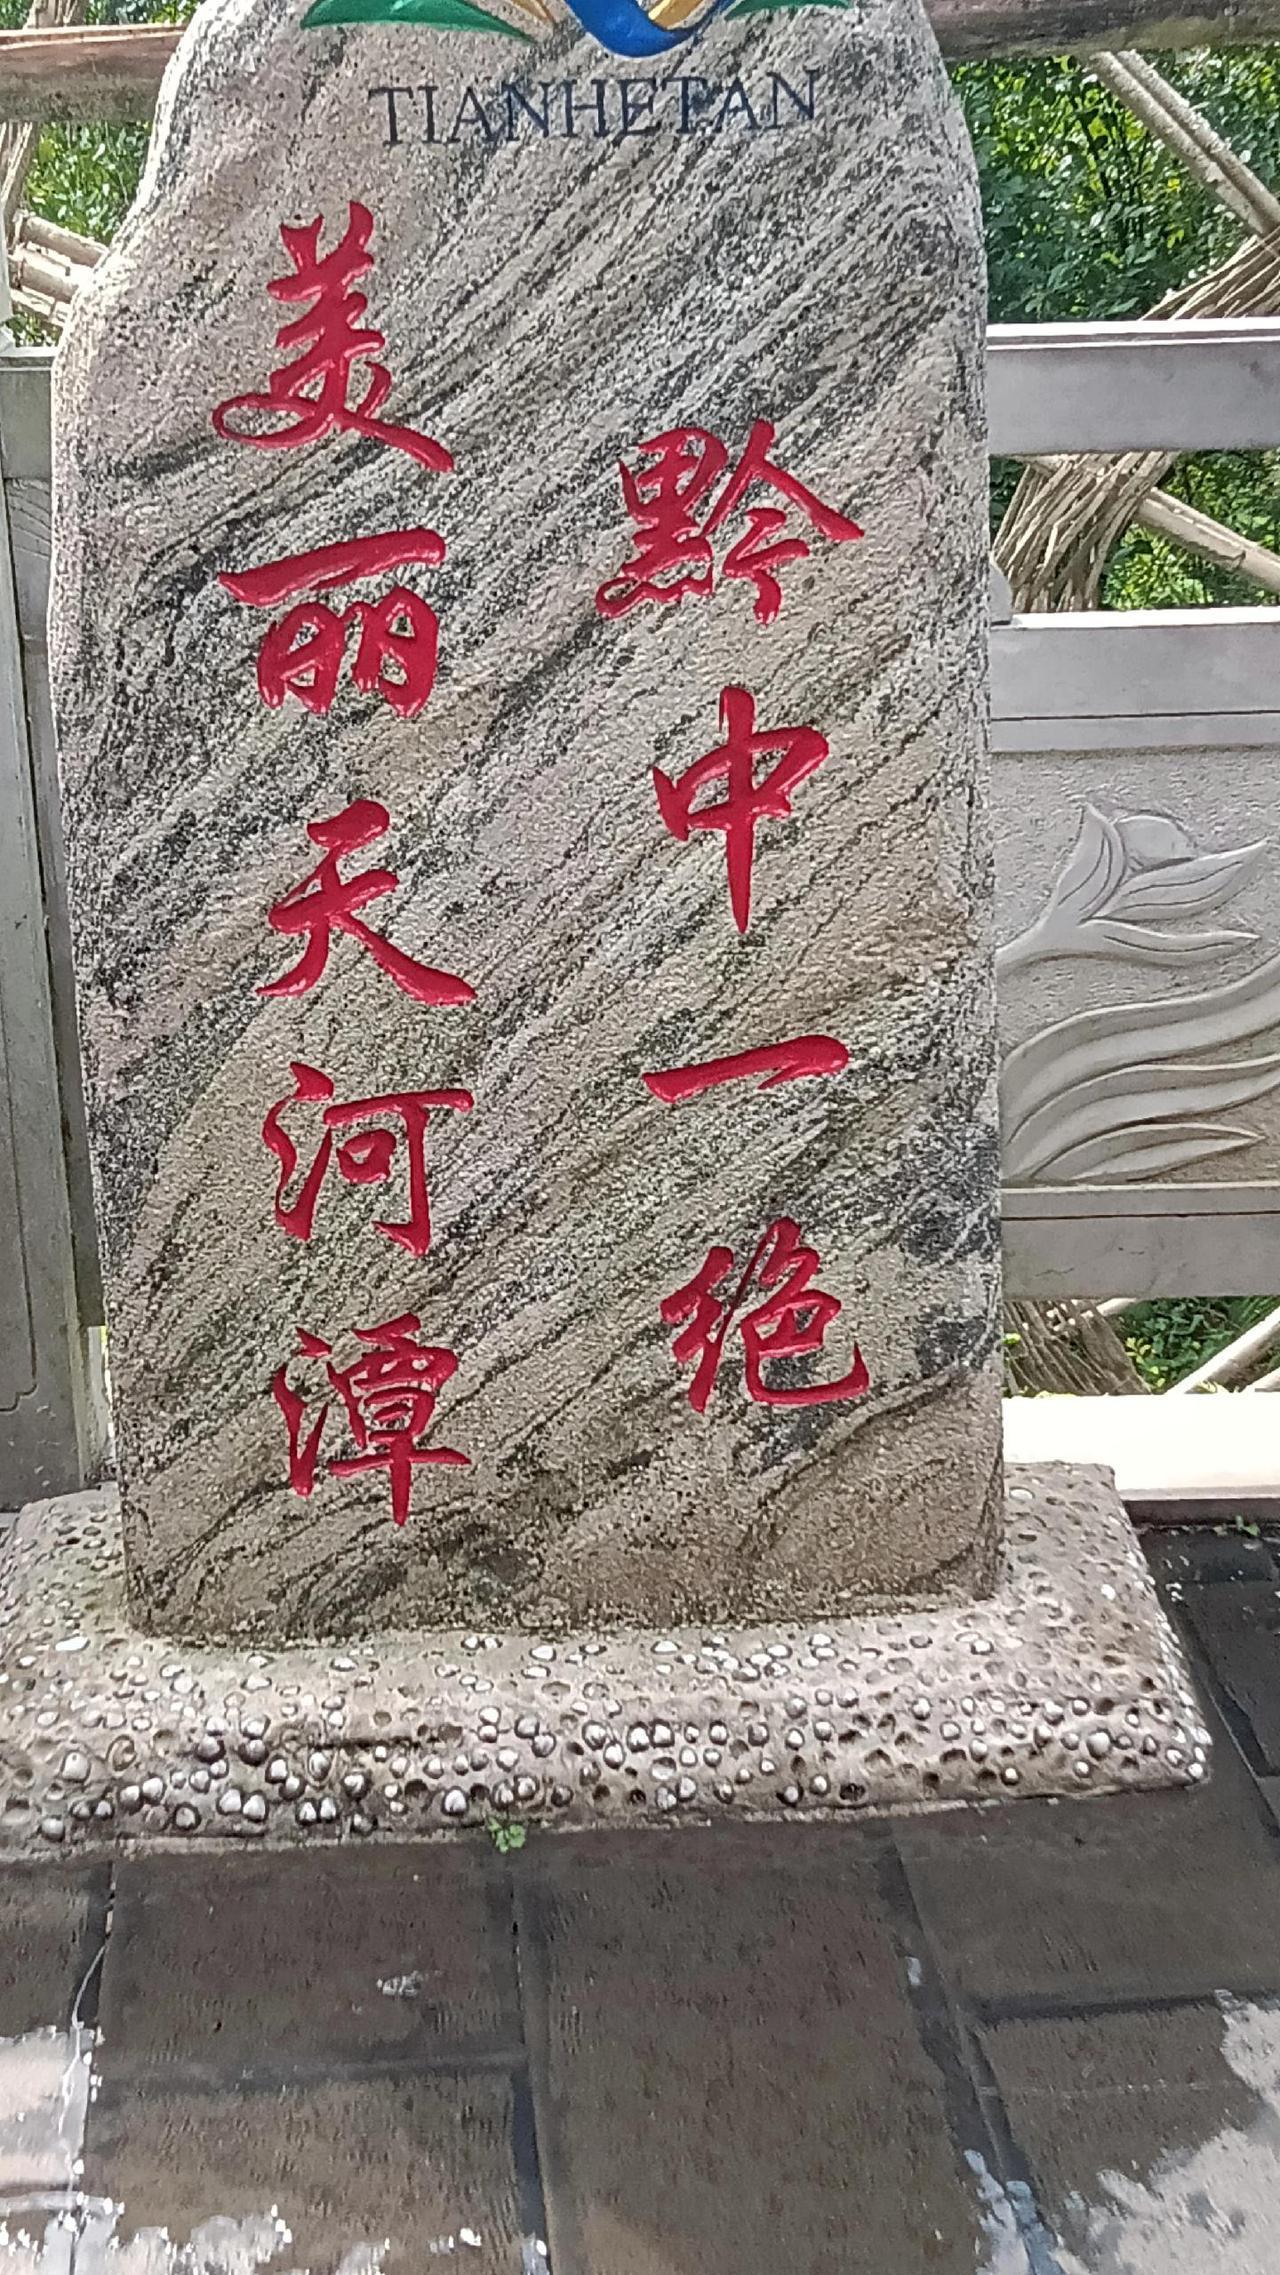 TIANHETAN
美丽天河潭
黔中一绝